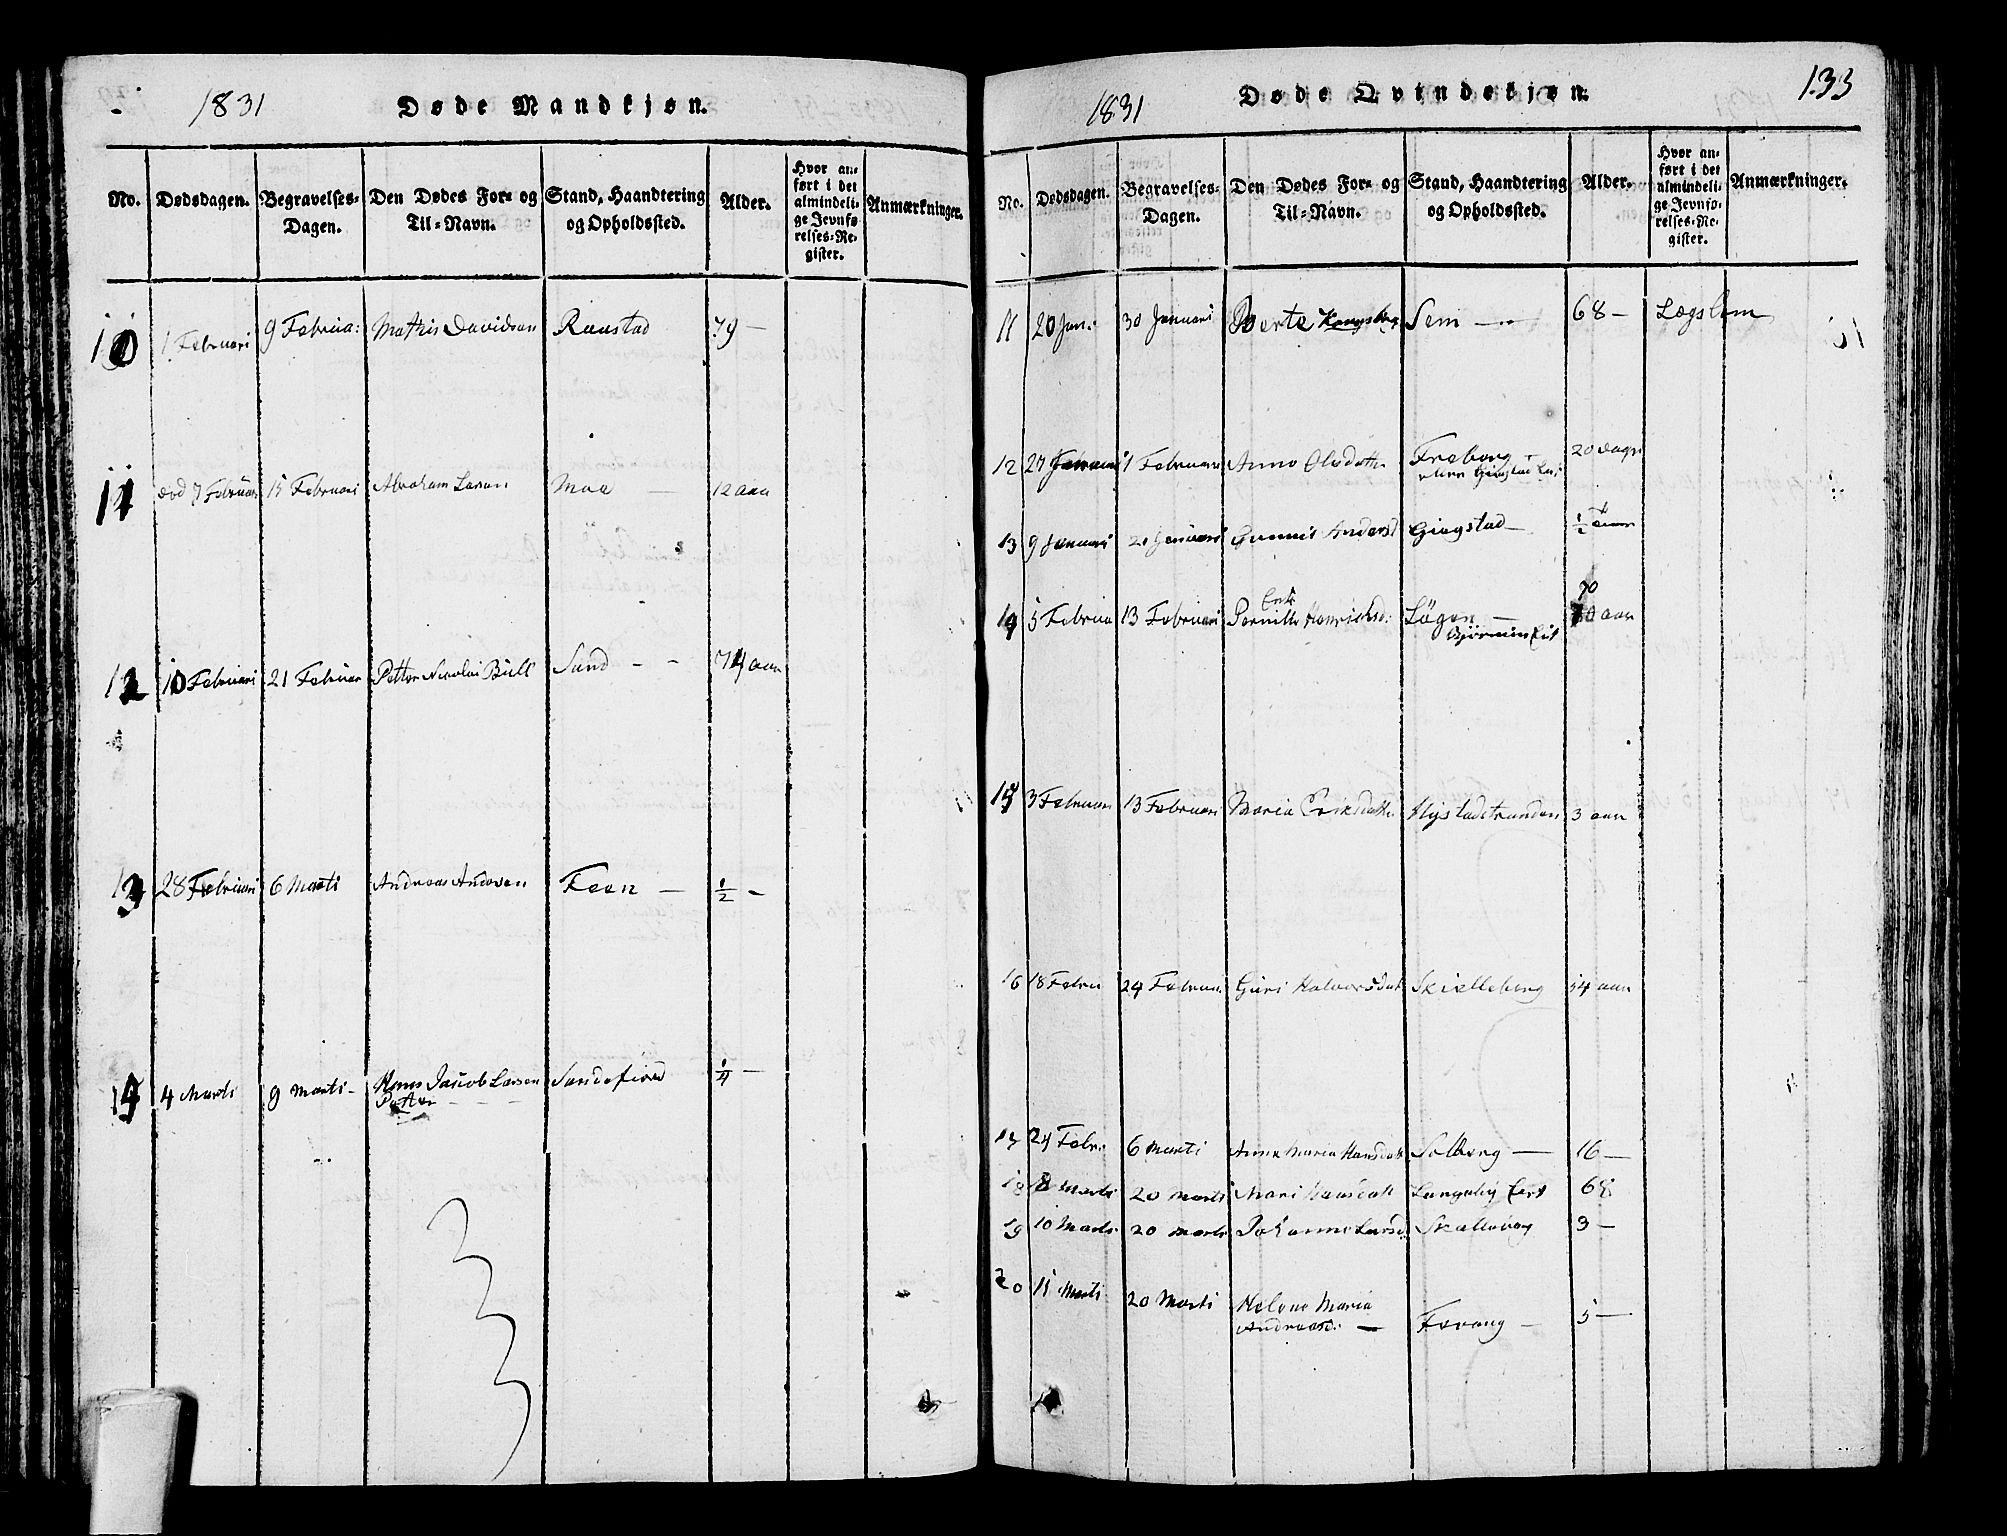 1831 Døde Mandkjøn.
No. Dødsdagen. Begravelses-Dagen. Den Dødes For- og Til-Navn. Stand, Haandtering og Opholdssted. Alder. Hvor anført i det almindelige Jevnførelses-Register. Anmærkninger.
10 1 Februari 9 Februa: Mathis Davidsen Raastad 79 —
11 død 7 Februar 15 Februari Abraham Larsen Moe — 12 aar
12 10 Februari 21 Februar Petter Nicolai Bull Sand - - 74 aar
13 28 Februari 6 Marti Andreas Andersen Feen — ½ -
14 4 Marti 9 Marti - Hans Jacob Larsen Sandefiord ¼ —
1831 Døde Qvindekjøn. 133
No. Dødsdagen. Begravelses-Dagen. Den Dødes For- og Til-Navn. Stand, Haandtering og Opholdssted. Alder. Hvor anført i det almindelige Jevnførelses-Register. Anmærkninger.
11 20 Jan: 30 Januari Berte Sem — 68 — Lægslem
12 27 Januari 1 Februari Anne Olsdatter Freberg 20 dage
13 9 Januari 20 Januari Gunnil Andersd Giegstad — ½
Enke
14 5 Februa 13 Februari Pernille Henrichsd: — 70 aar
15 3 Februari 13 Februari Maria Eriksdatter 3 aar
16 18 Febru 24 Februar Guri Halvorsdat Skielleberg 54 aar
17 24 Febr: 6 Marti Anne Maria Hansdatt Solberg — 16 —
18 8 Marti 20 Marti Mari Hansdatt Langeby 68
19 10 Marti 20 Marti Johanne Larsd. 3 —
20 11 Marti 20 Marti Helene Maria
Andreasd: — Forvang — 5 —